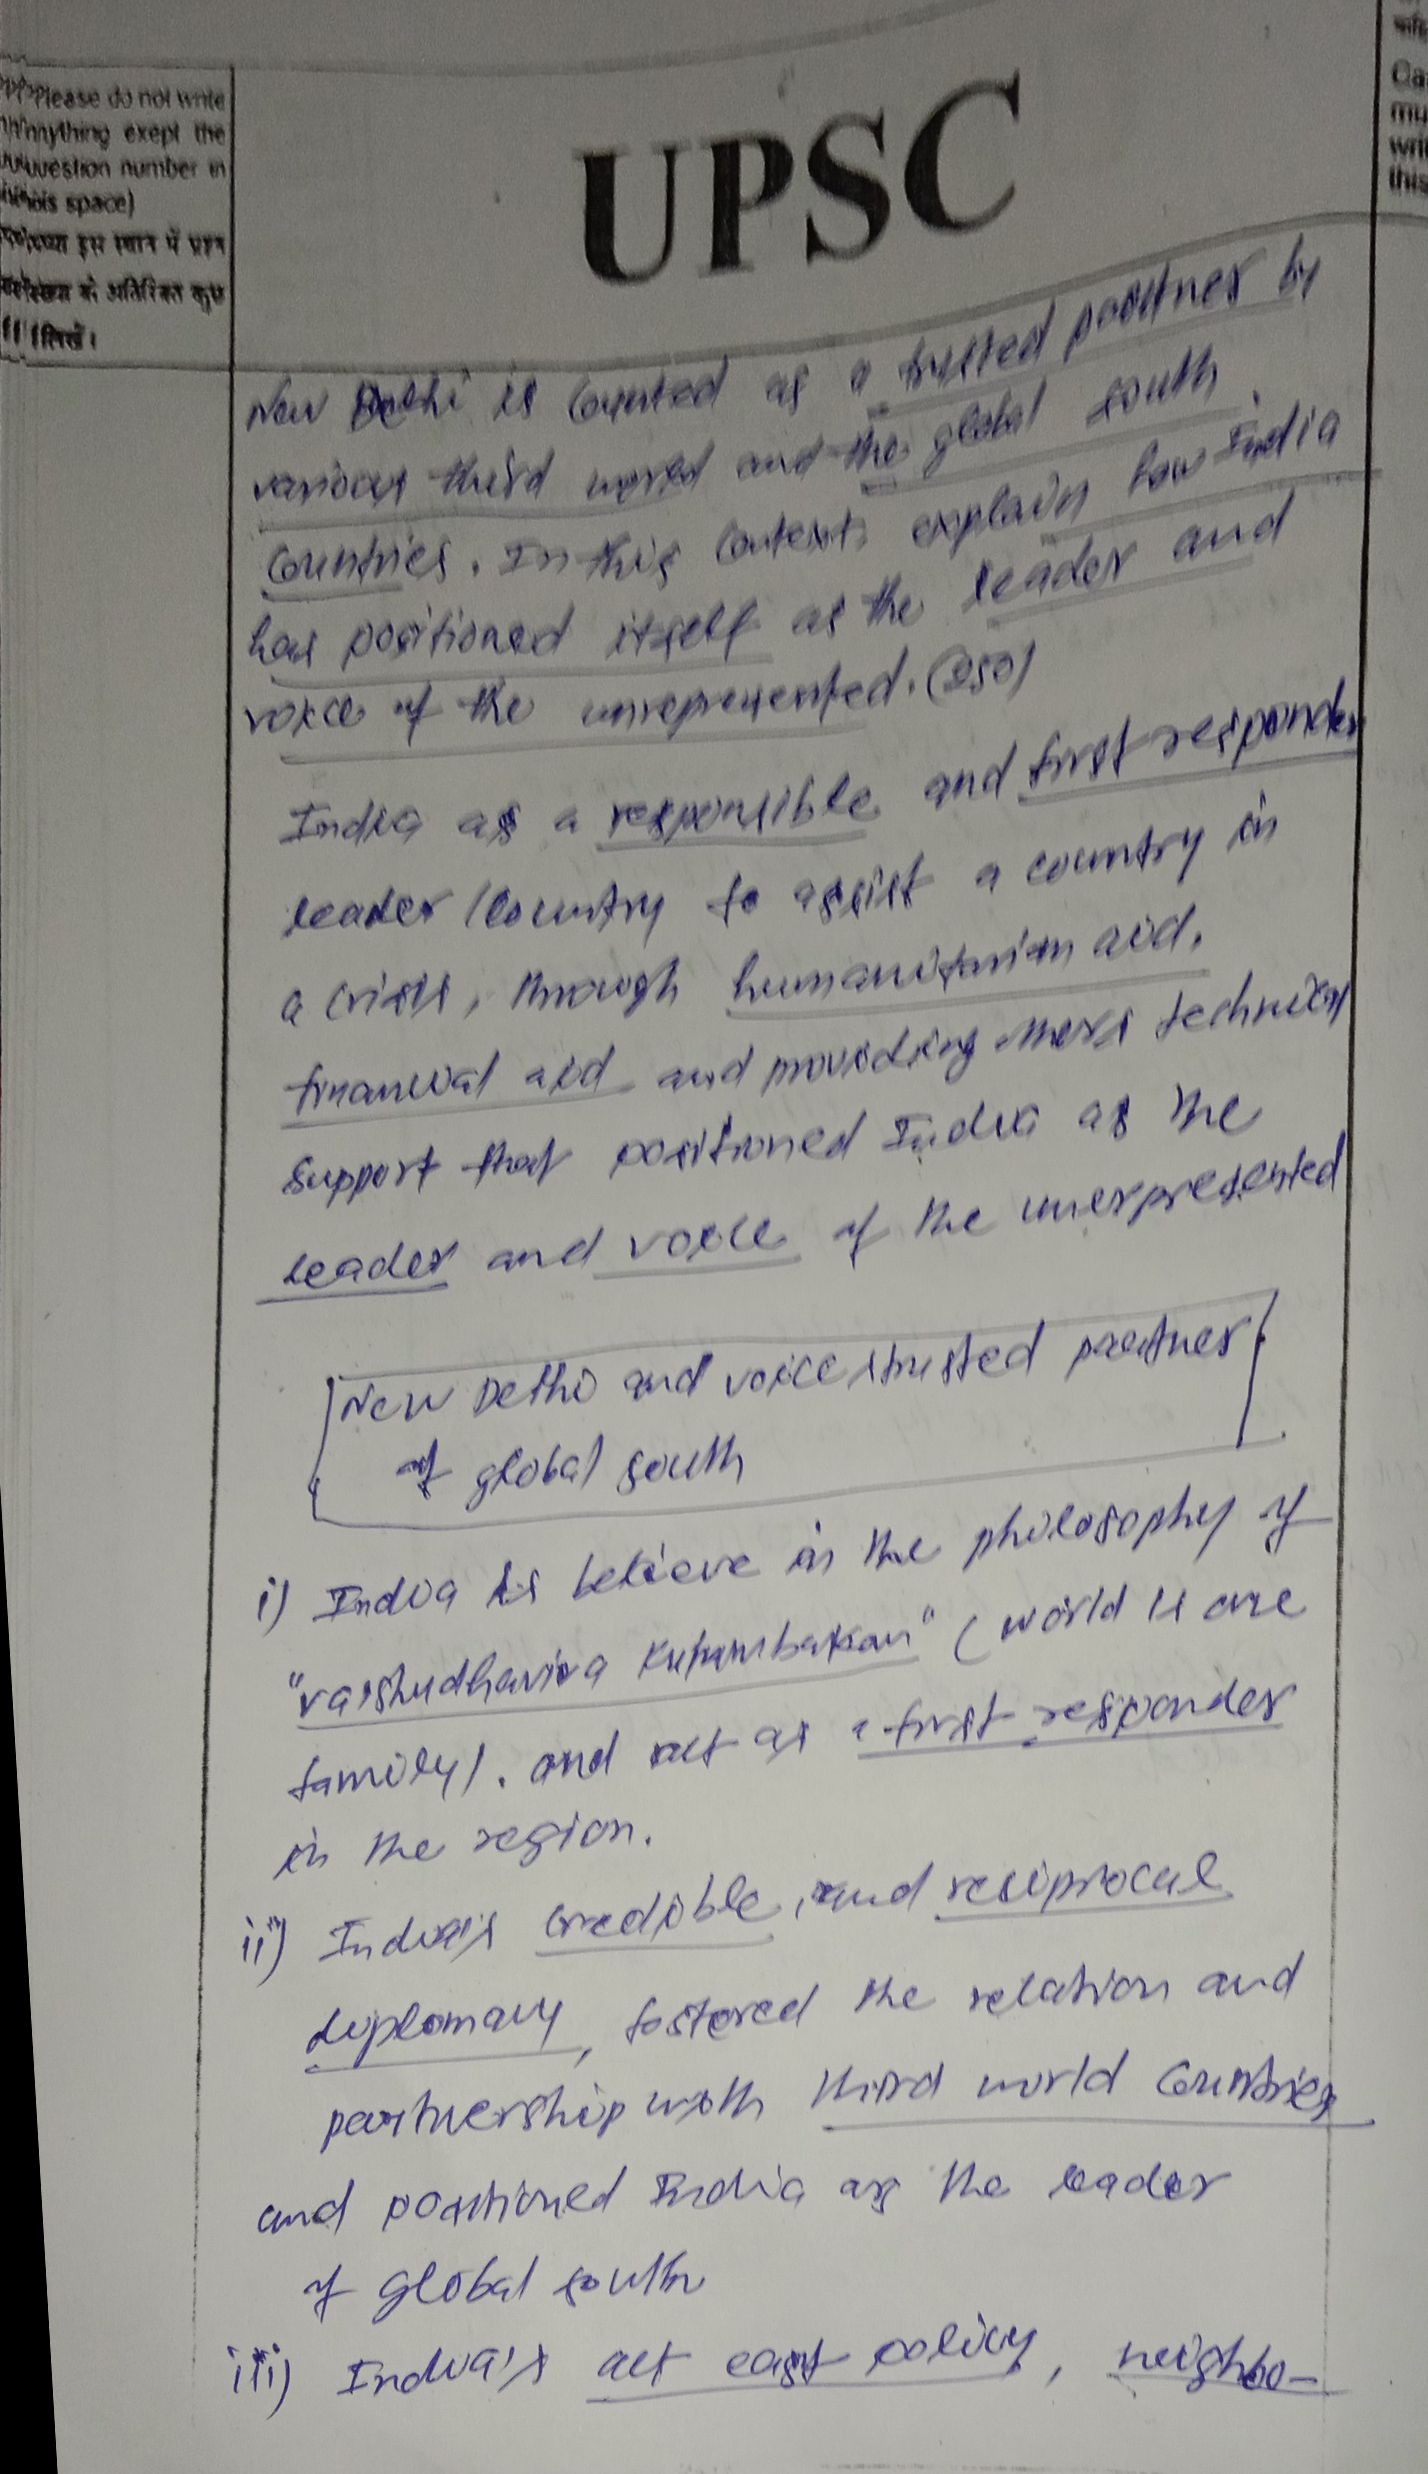 Please do not write
anything exept the
question number in
this space)
इस स्थान में प्रश्न
के अतिरिक्त कुछ
लिखें।
UPSC
New Delhi is counted as a trusted partner by
various third world and the global south
countries. In this context explain how India
has positioned itself as the leader and
voice of the unrepresented. (250)
India as a responsible and first responder
leader / country to assist a country in
a crisis, through humanitarian aid,
financial aid and providing technical
support that positioned India as the
leader and voice of the unerpresented
New Delhi and voice / trusted partner
of global south
i) India is believe in the philosophy of
"vaishudhaiva Kutumbakam" ( world is one
family). and act as a first responder
in the region.
ii) India's credible, and reciprocal
diplomacy, fostered the relation and
partnership with third world countries
and positioned India as the leader
of global south
iii) India's act east policy, neighbo-